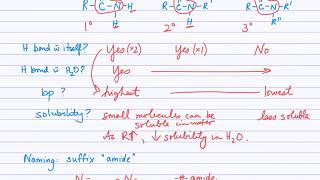 R-C-N-H R-C-N-R' R-C-N-R'
H H R"
1° 2° 3°
H bond w̄ itself? Yes (×2) Yes (×1) No
H bond w̄ H₂O? Yes
bp? highest lowest
solubility? small molecules can be soluble in water less soluble
As R↑, ↓ solubility in H₂O.
Naming: suffix "amide"
N- N- -#-amide